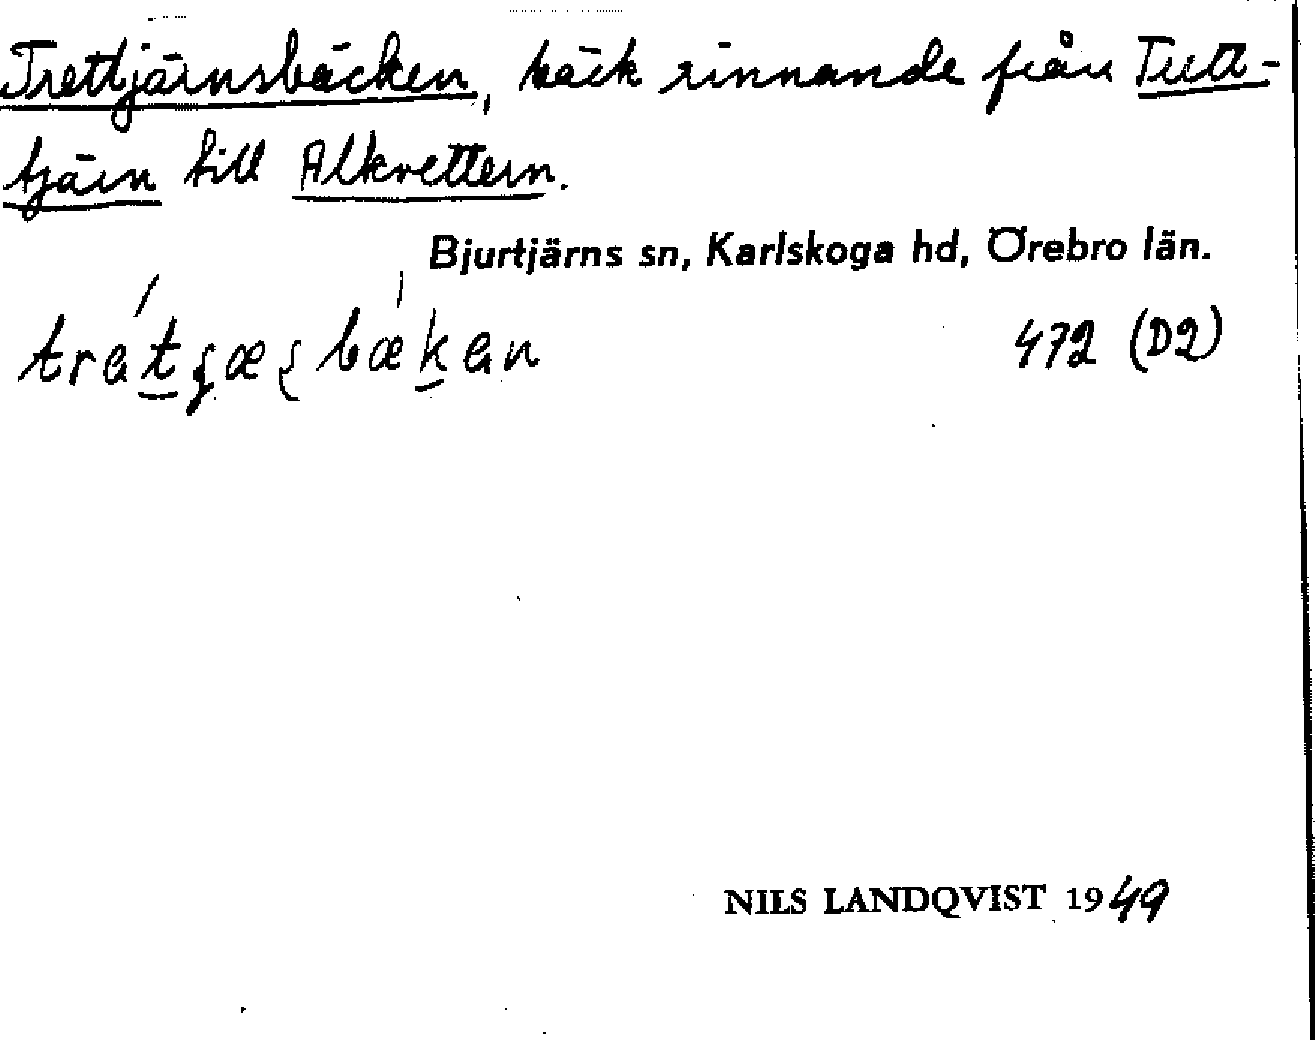 Trettjärnsbäcken, bäck rinnande från Tutt-
tjärn till Alkvettern.
Bjurtjärns sn, Karlskoga hd, Örebro län.
472 (D2)
NILS LANDQVIST 1949